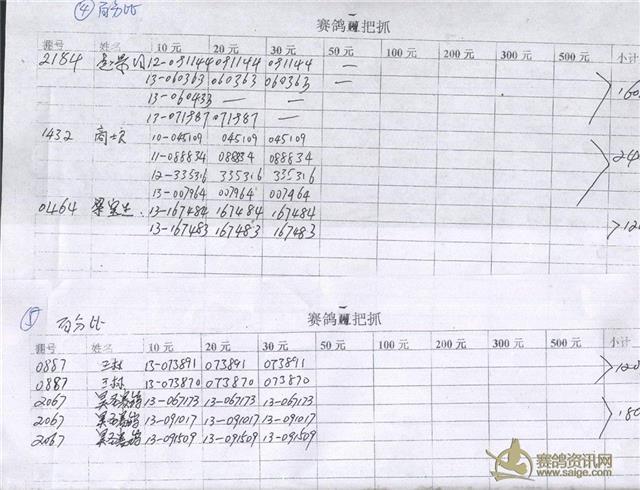 ④ 百分比
赛鸽 把抓
棚号 姓名 10元 20元 30元 50元 100元 200元 300元 500元 小计
2184 12-091144 091144 091144 —
13-060363 060363 060363 —
13-060433 — —
13-071987 071987 —
160
1432 10-045109 045109 045109
11-088834 088834 088834
12-335316 335316 335316
13-007964 007964 007964
240
0464 13-167484 167484 167484
13-167483 167483 167483
120
⑤ 百分比
赛鸽 把抓
棚号 姓名 10元 20元 30元 50元 100元 200元 300元 500元 小计
0887 13-073891 073891 073891
0887 13-073870 073870 073870
120
2067 13-067173 13-067173 13-067173
2067 13-091017 13-091017 13-091017
2067 13-091509 13-091509 13-091509
180
赛鸽资讯网
www.saige.com